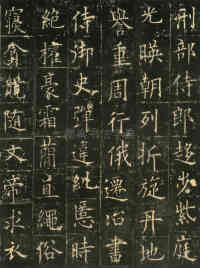 刑部侍郎趍步紫庭
光暎朝列折旋丹地
譽重周行俄遷治書
侍御史彈違糺慝時
絕權豪霜簡直繩俗
寢貪競隨文帝求衣